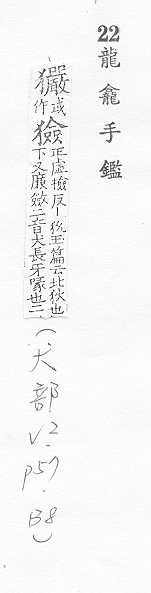 22龍龕手鑑
玁或作獫正虛撿反丨狁玉篇云北狄也
下又廉斂二音犬長牙喙也二
(犬部 V2. P57. B8)